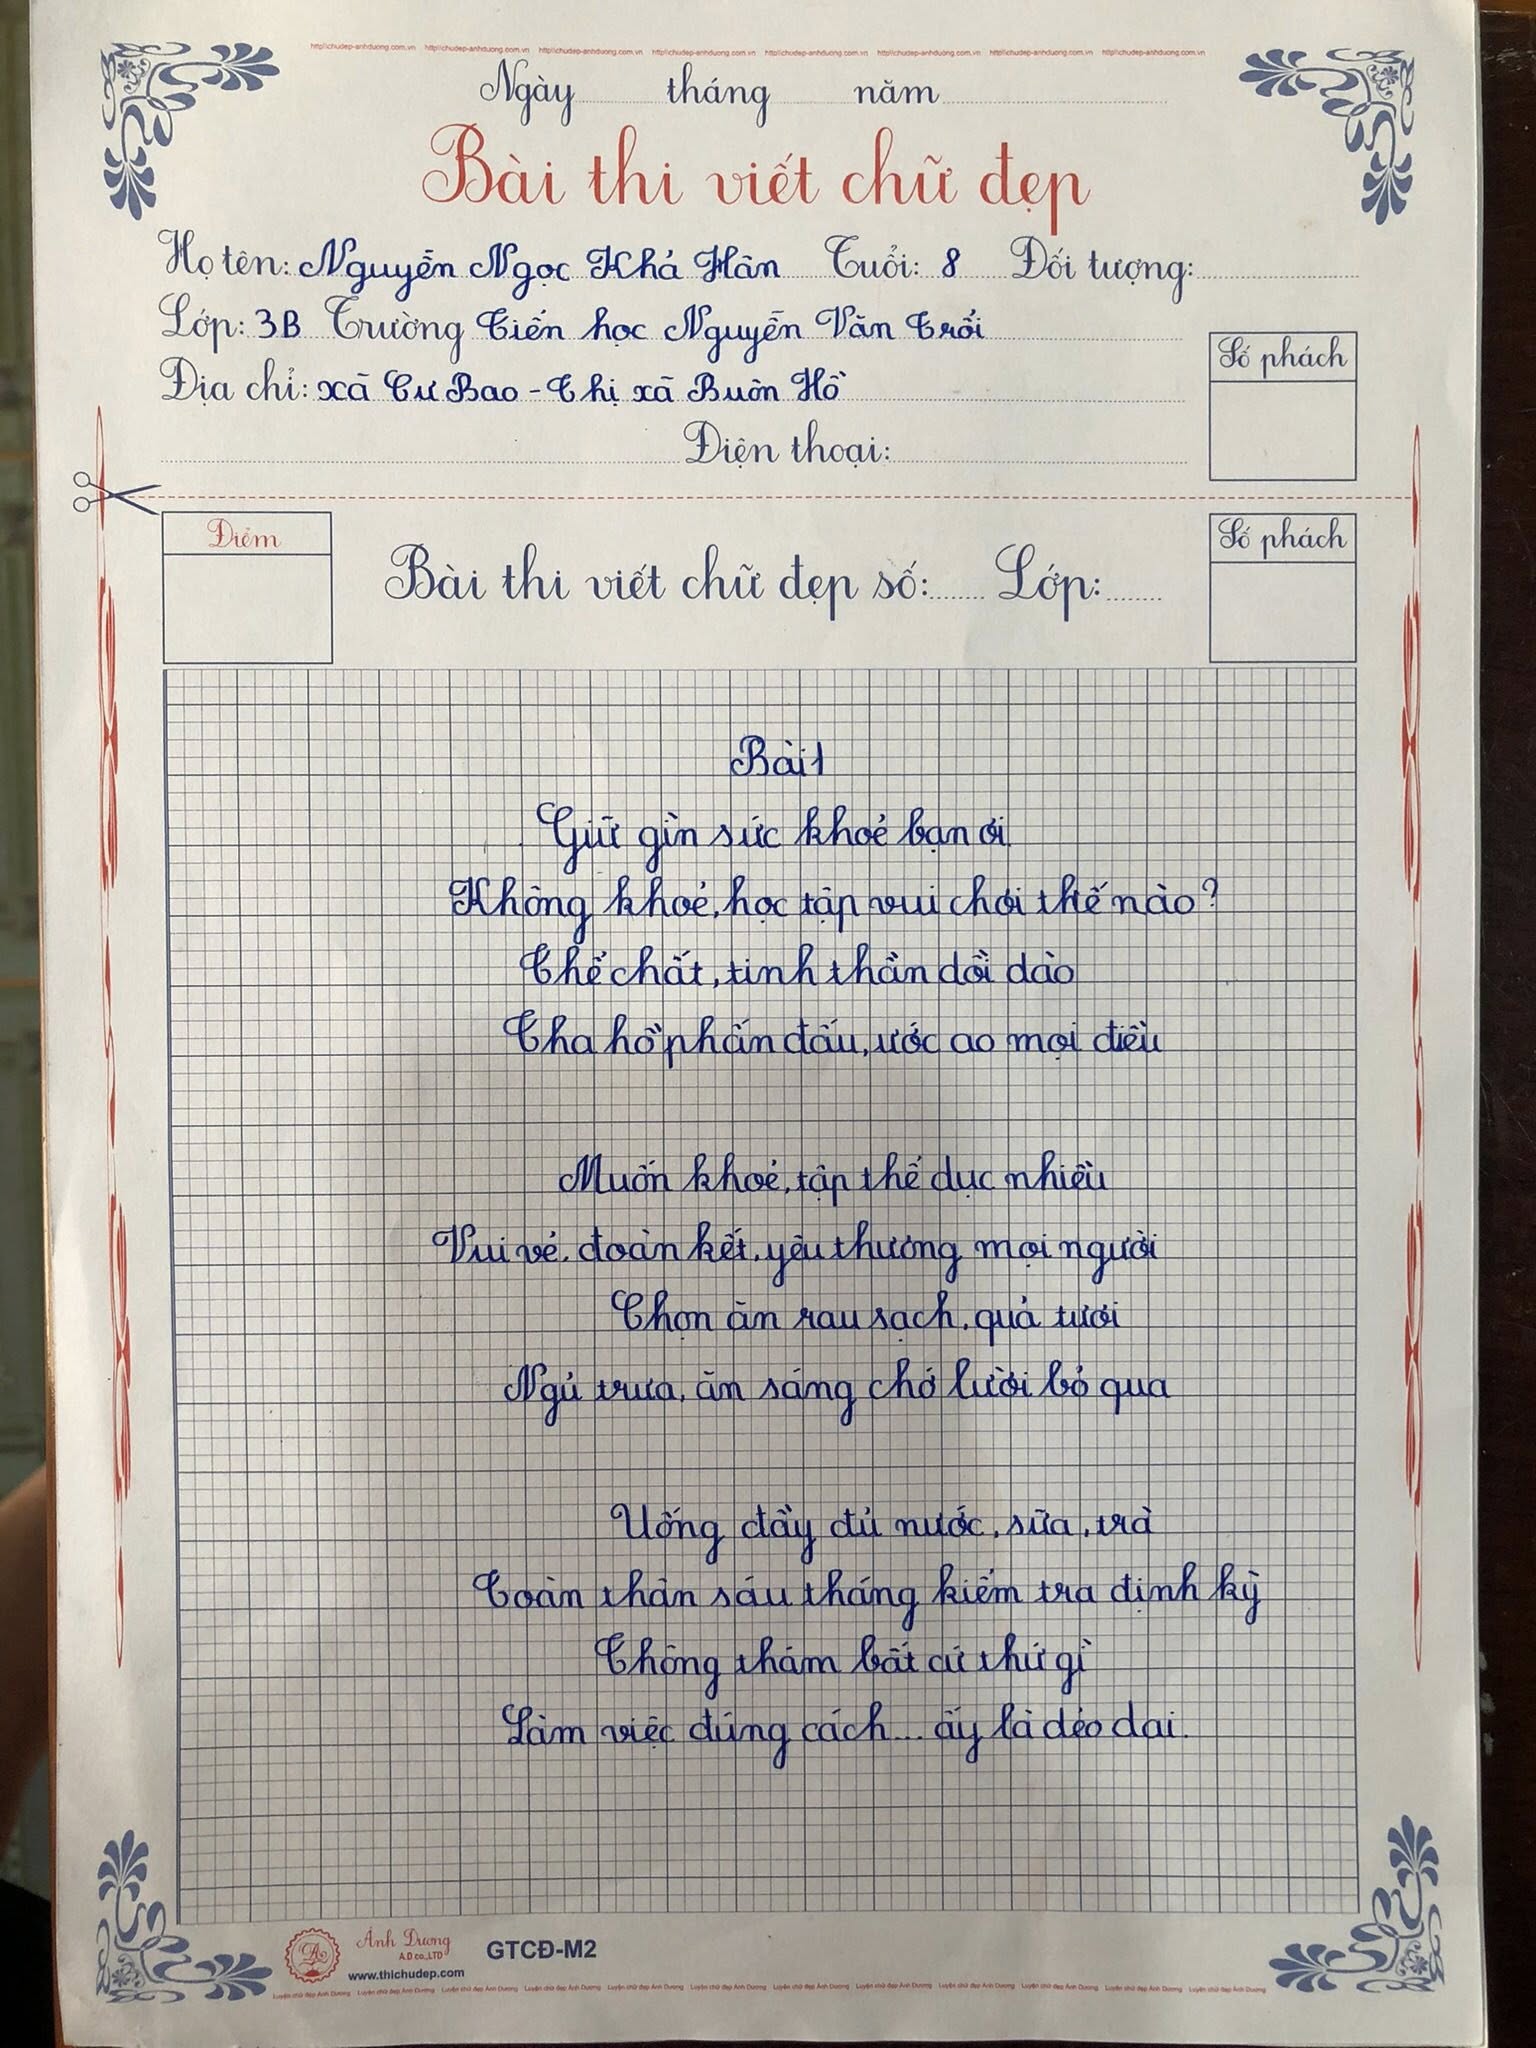 http\\chudep-anhduong.com.vn http\\chudep-anhduong.com.vn http\\chudep-anhduong.com.vn http\\chudep-anhduong.com.vn http\\chudep-anhduong.com.vn http\\chudep-anhduong.com.vn http\\chudep-anhduong.com.vn http\\chudep-anhduong.com.vn
Ngày tháng năm
Bài thi viết chữ đẹp
Họ tên: Nguyễn Ngọc Khả Hân Tuổi: 8 Đối tượng:
Lớp: 3B Trường Tiển học Nguyễn Văn Trổi
Địa chỉ: xã Cư Bao - Thị xã Buôn Hồ
Số phách
Điện thoại:
Điểm
Bài thi viết chữ đẹp số: Lớp:
Số phách
Bài 1
Giữ gìn sức khoẻ bạn ơi
Không khoẻ, học tập vui chơi thế nào?
Thể chất, tinh thần dồi dào
Tha hồ phấn đấu, ước ao mọi điều
Muốn khoẻ, tập thể dục nhiều
Vui vẻ, đoàn kết, yêu thương mọi người
Chọn ăn rau sạch, quả tươi
Ngủ trưa, ăn sáng chớ lười bỏ qua
Uống đầy đủ nước, sữa, trà
Toàn thân sáu tháng kiểm tra định kỳ
Chông thám bất cứ thứ gì
Làm việc đúng cách... ấy là dẻo dai.
Ánh Dương
A.D co.,LTD
www.thichudep.com
GTCĐ-M2
Luyện chữ đẹp Ánh Dương Luyện chữ đẹp Ánh Dương Luyện chữ đẹp Ánh Dương Luyện chữ đẹp Ánh Dương Luyện chữ đẹp Ánh Dương Luyện chữ đẹp Ánh Dương Luyện chữ đẹp Ánh Dương Luyện chữ đẹp Ánh Dương Luyện chữ đẹp Ánh Dương Luyện chữ đẹp Ánh Dương Luyện chữ đẹp Ánh Dương Luyện chữ đẹp Ánh Dương